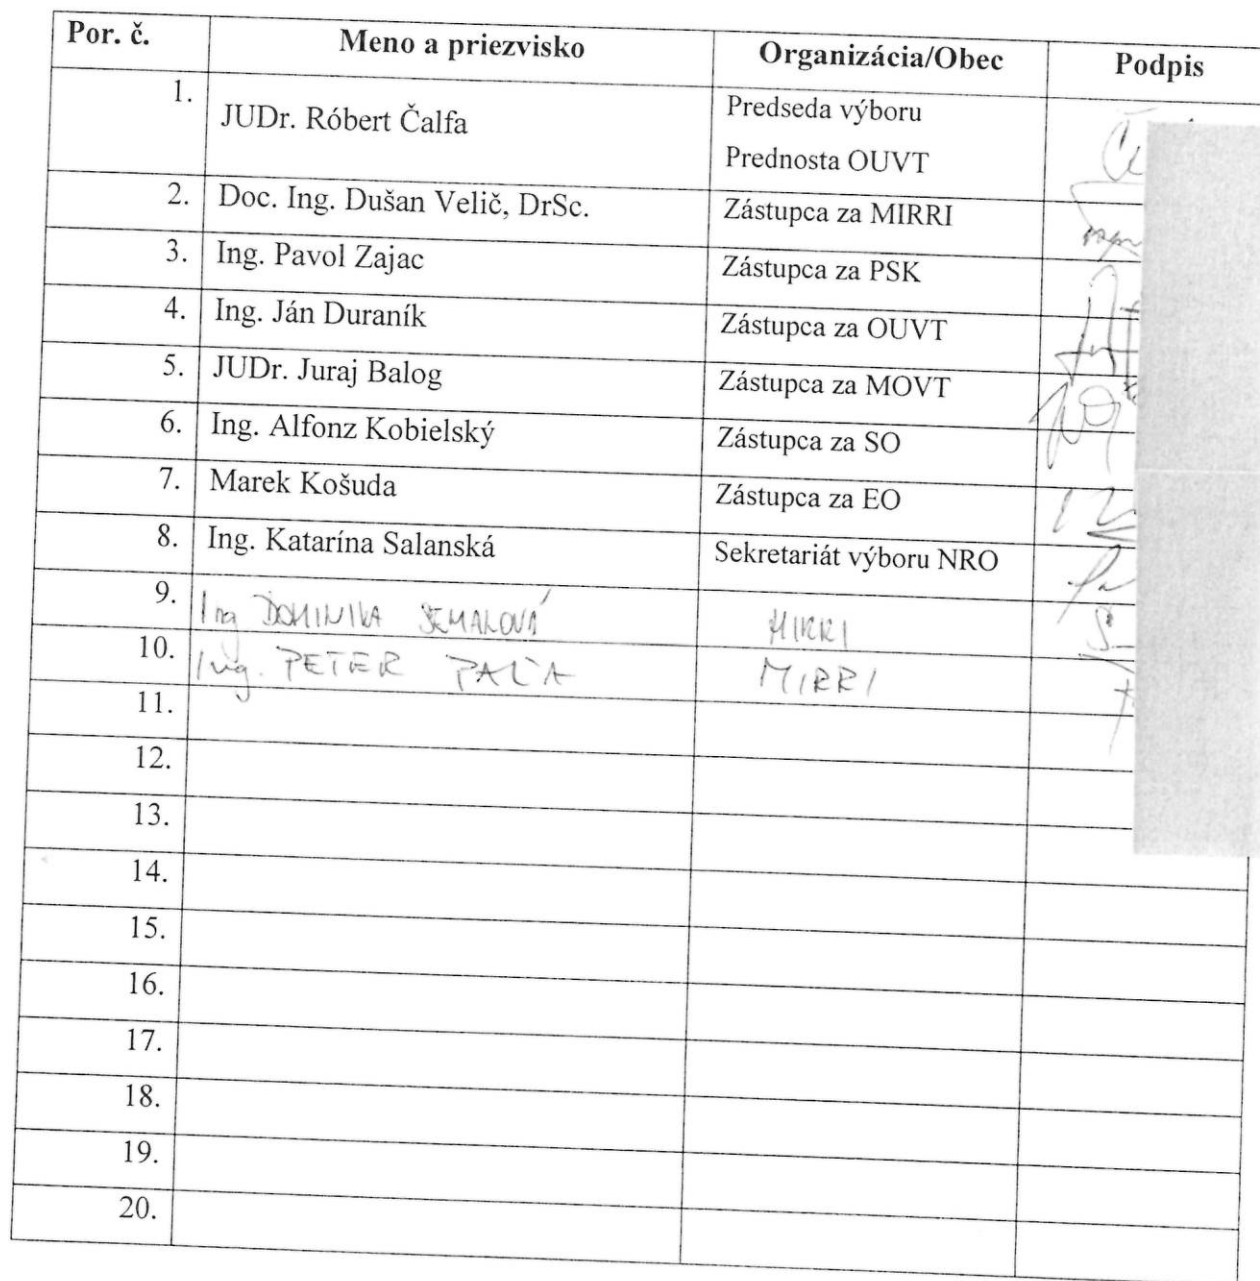 Por. č. Meno a priezvisko Organizácia/Obec Podpis
1. JUDr. Róbert Čalfa Predseda výboru
Prednosta OUVT
2. Doc. Ing. Dušan Velič, DrSc. Zástupca za MIRRI
3. Ing. Pavol Zajac Zástupca za PSK
4. Ing. Ján Duraník Zástupca za OUVT
5. JUDr. Juraj Balog Zástupca za MOVT
6. Ing. Alfonz Kobielský Zástupca za SO
7. Marek Košuda Zástupca za EO
8. Ing. Katarína Salanská Sekretariát výboru NRO
9. Ing DOMINIKA MIRRI
10. Ing. PETER PAĽA MIRRI
11.
12.
13.
14.
15.
16.
17.
18.
19.
20.